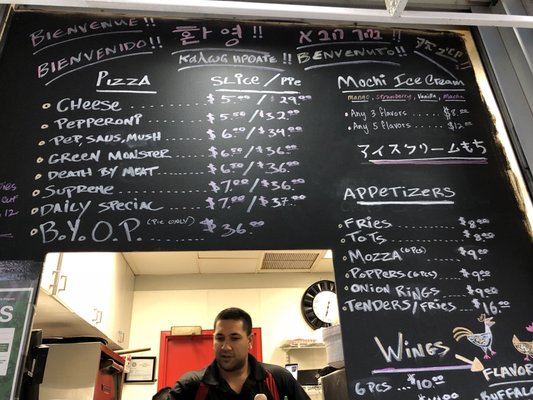 BIENVENUE !! 환영 !! ברוך הבא !!
BIENVENIDO !! ΚΑΛΩΣ ΗΡΘΑΤΕ !! BENVENUTO !!
PIZZA SLICE / PIE
CHEESE $5.00/$29.00
PEPPERONI $5.50/$32.00
PEP, SAUS, MUSH $6.00/$34.00
GREEN MONSTER $6.50/$36.00
DEATH BY MEAT $6.50/$36.00
SUPREME $7.00/$36.00
DAILY SPECIAL $7.00/$37.00
B.Y.O.P. (PIE ONLY) $36.00
MOCHI ICE CREAM
MANGO, STRAWBERRY, VANILLA, MOCHA
ANY 3 FLAVORS $8.00
ANY 5 FLAVORS $12.00
アイスクリームもち
APPETIZERS
FRIES $8.00
TOTS $8.00
MOZZA (6 PCS) $9.00
POPPERS (6 PCS) $9.00
ONION RINGS $9.00
TENDERS/FRIES $16.00
WINGS
6 PCS $10.00
FLAVOR
BUFFALO